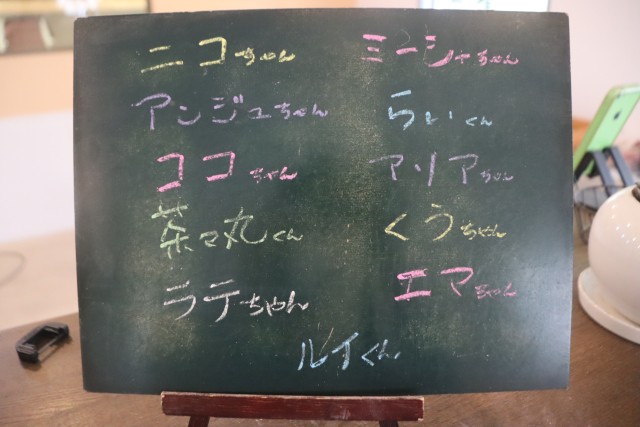 ニコちゃん
アンジュちゃん
ココちゃん
茶々丸くん
ラテちゃん
ミーシャちゃん
らいくん
アリアちゃん
くうちゃん
エマちゃん
ルイくん